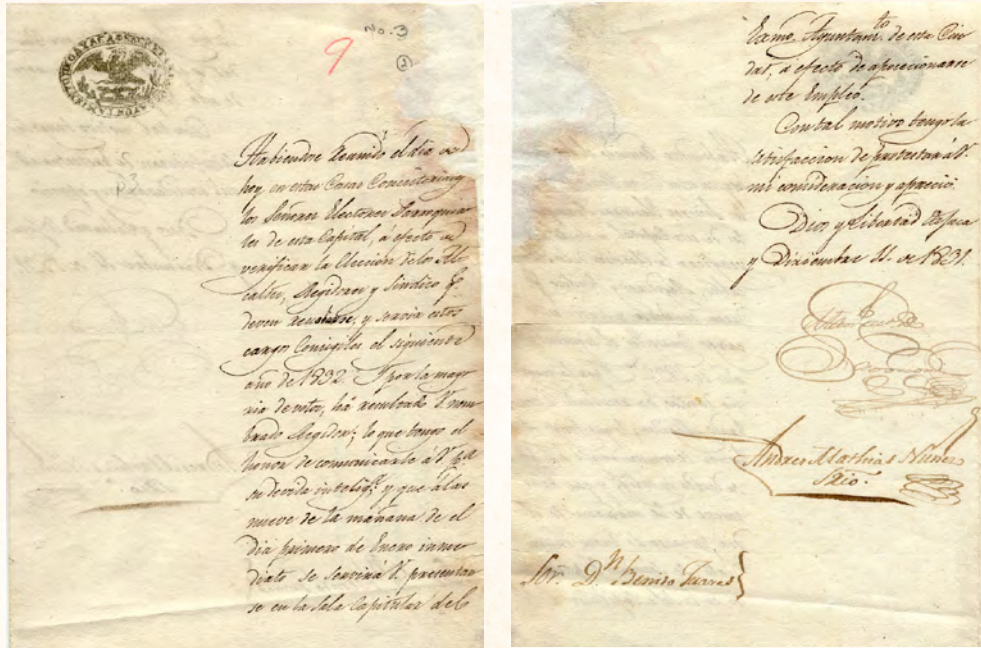 9
No. 3
(2)
Habiendose reunido el dia de
hoy en estas Casas Consistoriales
los Señores Electores Parroquia
les de esta Capital, á efecto de
verificar la Eleccion de los Al
caldes, Regidores y Sindico q.
deven renovarse, y servir estos
cargos Concegiles el siguiente
año de 1832. Y por la mayo
ria de votos, há resultado V. nom
brado Regidor; lo que tengo el
honor de comunicarle a V. p.a
su devida intelig.a y que á las
nueve de la mañana de el
dia primero de Enero inme
diato se servirá V. presentar
se en la Sala Capitular del
Exmo. Ayuntam.to de esta Ciu
dad, á efecto de aposecionarse
de este Empleo.
Con tal motivo tengo la
satisfaccion de protestar a V.
mi consideracion y aprecio.
Dios y Libertad Oajaca
y Diciembre 11. de 1831.
Andres Mathias Nuñes
Srio.
Sor. D.n Benito Juares